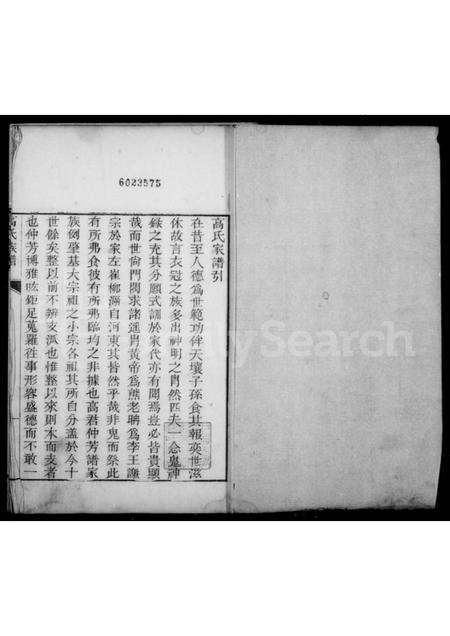 6023575
高氏家譜引
在昔至人德為世範功俾天壤子孫食其報奕世滋
休故言衣冠之族多出神明之胄然匹夫一念鬼神
錄之充其分願式訓於家代亦有聞焉豈必皆貴顯
哉而世尚門閥求諸遙胄黃帝為熊老聃為李王謙
宗於家左崔柳溯自河東其皆然乎哉非鬼而祭此
有所弗食彼有所弗臨均之非據也高君仲芳譜家
族倒肇基大宗祖之小宗各祖其所自分蓋於今十
世餘矣整以前不辨支派也惟整以來則本而支者
也仲芳博雅眩鉅足蒐羅往事形容盛德而不敢一
高氏家譜
Search